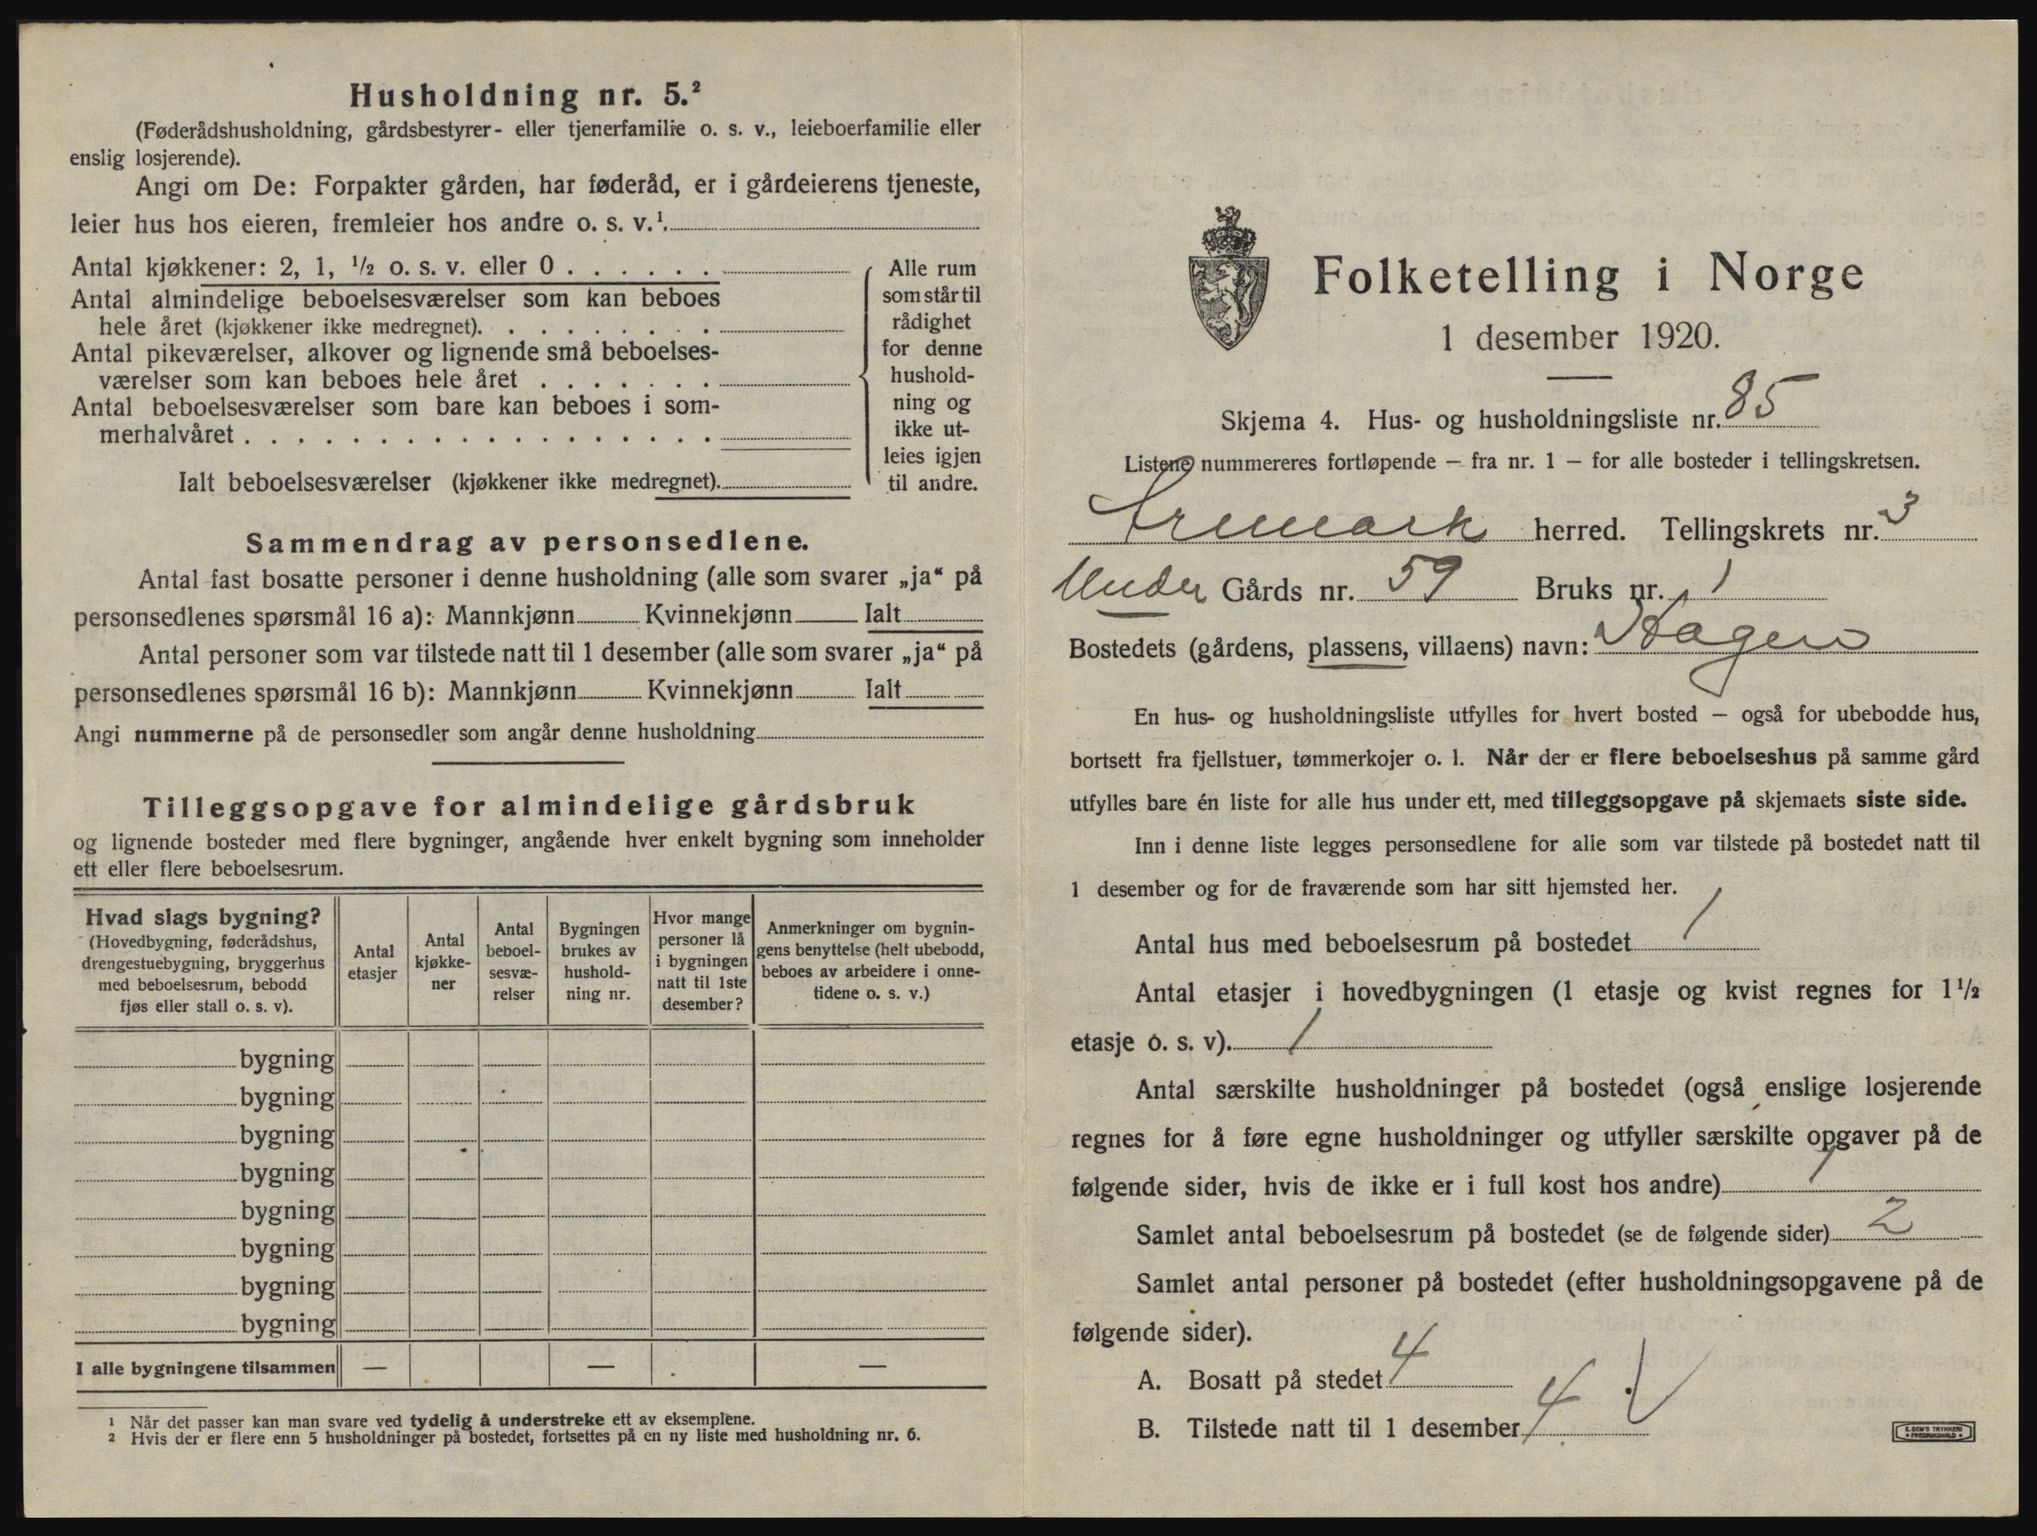 Husholdning nr. 5.²
(Føderådshusholdning, gårdsbestyrer- eller tjenerfamilie o. s. v., leieboerfamilie eller
enslig losjerende).
Angi om De: Forpakter gården, har føderåd, er i gårdeierens tjeneste,
leier hus hos eieren, fremleier hos andre o. s. v.¹.
Antal kjøkkener: 2, 1, ½ o. s. v. eller 0 . . . . . .
Antal almindelige beboelsesværelser som kan beboes
hele året (kjøkkener ikke medregnet). . . . . . . . .
Antal pikeværelser, alkover og lignende små beboelses-
værelser som kan beboes hele året . . . . . . .
Antal beboelsesværelser som bare kan beboes i som-
merhalvåret . . . . . . . . . . . . . . . . . .
Ialt beboelsesværelser (kjøkkener ikke medregnet).
Alle rum
som står til
rådighet
for denne
hushold-
ning og
ikke ut-
leies igjen
til andre.
Sammendrag av personsedlene.
Antal fast bosatte personer i denne husholdning (alle som svarer „ja“ på
personsedlenes spørsmål 16 a): Mannkjønn Kvinnekjønn Ialt
Antal personer som var tilstede natt til 1 desember (alle som svarer „ja“ på
personsedlenes spørsmål 16 b): Mannkjønn Kvinnekjønn Ialt
Angi nummerne på de personsedler som angår denne husholdning
Tilleggsopgave for almindelige gårdsbruk
og lignende bosteder med flere bygninger, angående hver enkelt bygning som inneholder
ett eller flere beboelsesrum.
Hvad slags bygning?
(Hovedbygning, føderådshus,
drengestuebygning, bryggerhus
med beboelsesrum, bebodd
fjøs eller stall o. s. v).
Antal
etasjer
Antal
kjøkke-
ner
Antal
beboel-
sesvæ-
relser
Bygningen
brukes av
hushold-
ning nr.
Hvor mange
personer lå
i bygningen
natt til 1ste
desember?
Anmerkninger om bygnin-
gens benyttelse (helt ubebodd,
beboes av arbeidere i onne-
tidene o. s. v.)
bygning
bygning
bygning
bygning
bygning
bygning
bygning
bygning
I alle bygningene tilsammen — — —
¹ Når det passer kan man svare ved tydelig å understreke ett av eksemplene.
² Hvis der er flere enn 5 husholdninger på bostedet, fortsettes på en ny liste med husholdning nr. 6.
Folketelling i Norge
1 desember 1920.
Skjema 4. Hus- og husholdningsliste nr. 85
Listene nummereres fortløpende — fra nr. 1 — for alle bosteder i tellingskretsen.
Aremark herred. Tellingskrets nr. 3
Under Gårds nr. 59 Bruks nr. 1
Bostedets (gårdens, plassens, villaens) navn: Hagen
En hus- og husholdningsliste utfylles for hvert bosted — også for ubebodde hus,
bortsett fra fjellstuer, tømmerkojer o. l. Når der er flere beboelseshus på samme gård
utfylles bare én liste for alle hus under ett, med tilleggsopgave på skjemaets siste side.
Inn i denne liste legges personsedlene for alle som var tilstede på bostedet natt til
1 desember og for de fraværende som har sitt hjemsted her.
Antal hus med beboelsesrum på bostedet 1
Antal etasjer i hovedbygningen (1 etasje og kvist regnes for 1½
etasje o. s. v). 1
Antal særskilte husholdninger på bostedet (også enslige losjerende
regnes for å føre egne husholdninger og utfyller særskilte opgaver på de
følgende sider, hvis de ikke er i full kost hos andre) 1
Samlet antal beboelsesrum på bostedet (se de følgende sider) 2
Samlet antal personer på bostedet (efter husholdningsopgavene på de
følgende sider).
A. Bosatt på stedet 4
B. Tilstede natt til 1 desember 4
E. SEM'S TRYKKERI
• FREDRIKSHALD •